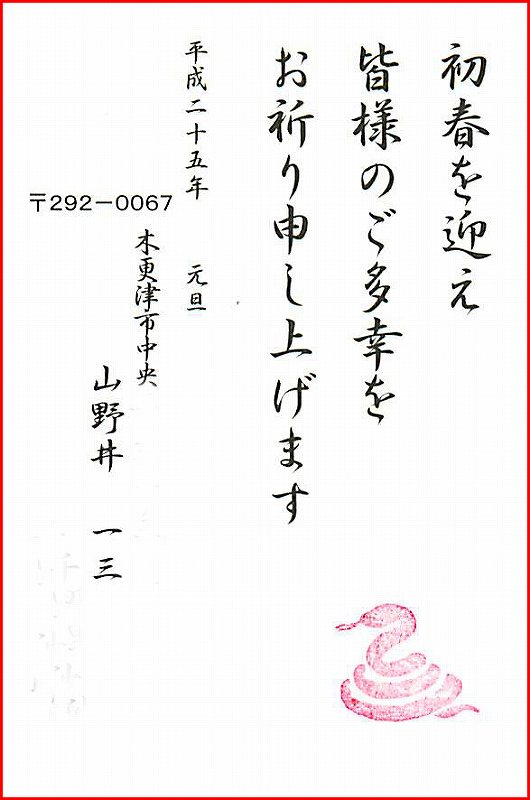 初春を迎え
皆様のご多幸を
お祈り申し上げます
平成二十五年　元旦
〒292－0067
木更津市中央
山野井　一三